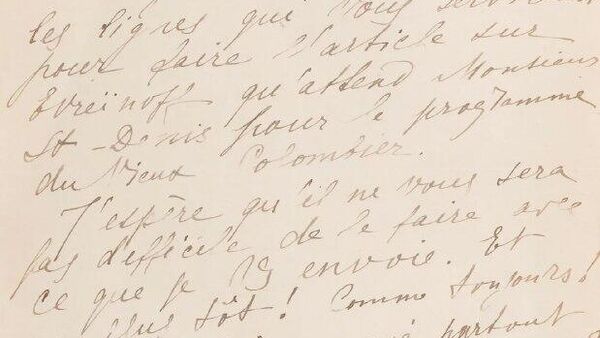 les lignes qui vous
pour faire l'article sur
Evreïnoff qu'attend Monsieur
St-Denis pour le programme
du Vieux Colombier.
J'espère qu'il ne vous sera
pas difficile de le faire avec
ce que je envoie. Et
plus tôt! Comme toujours!
partout